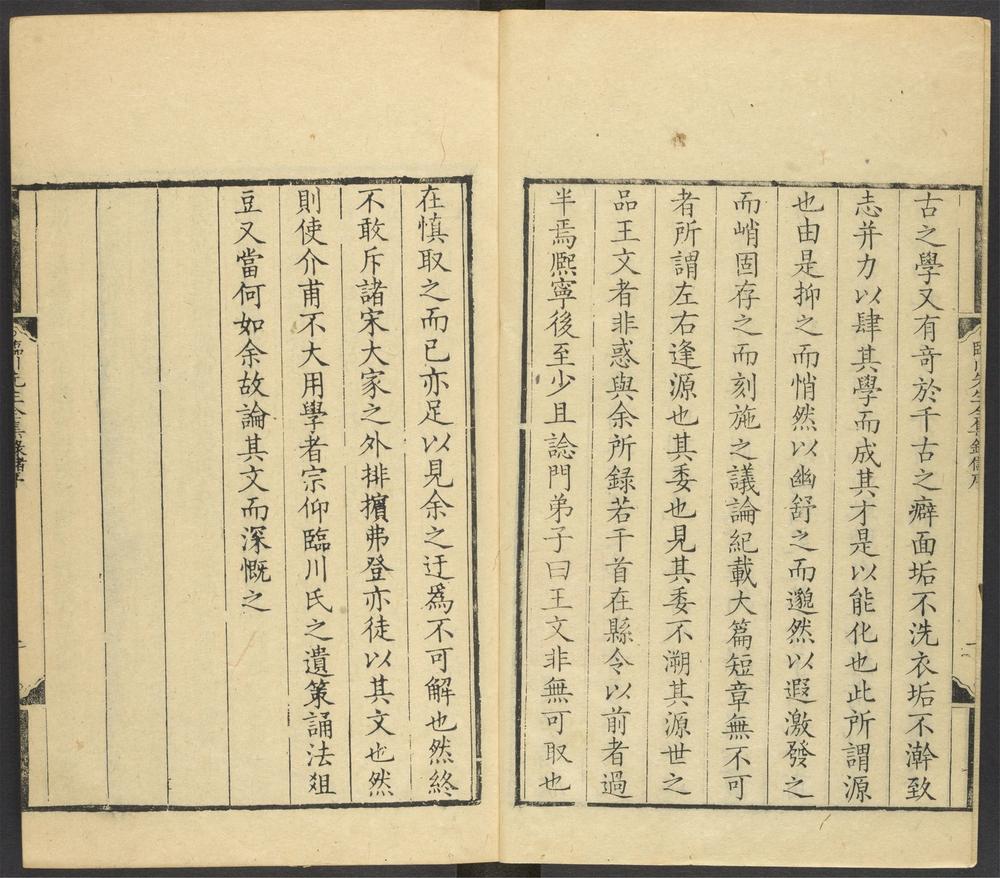 古之學又有奇於千古之癖面垢不洗衣垢不澣致
志并力以肆其學而成其才是以能化也此所謂源
也由是抑之而悄然以幽舒之而邈然以遐激發之
而峭固存之而刻施之議論紀載大篇短章無不可
者所謂左右逢源也其委也見其委不溯其源世之
品王文者非惑與余所録若干首在縣令以前者過
半焉熈寧後至少且諗門弟子曰王文非無可取也
在慎取之而已亦足以見余之迂爲不可解也然終
不敢斥諸宋大家之外排擯弗登亦徒以其文也然
則使介甫不大用學者宗仰臨川氏之遺策誦法俎
豆又當何如余故論其文而深慨之